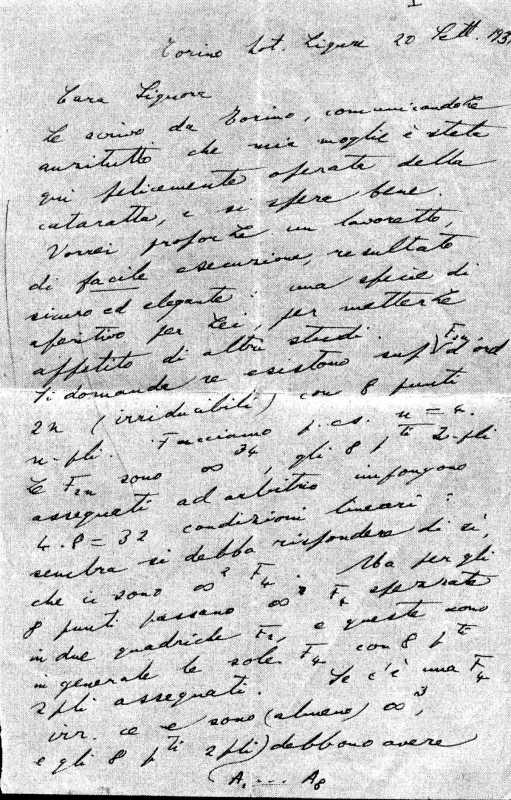 I
Torino Hot. Ligure 20 Sett. 193
Cara Signora
Le scrivo da Torino, comunicandole
anzitutto che mia moglie è stata
qui felicemente operata della
cataratta, e si spera bene.
Vorrei proporLe un lavoretto,
di facile esecuzione, resultato
sicuro ed elegante: una specie di
aperitivo per Lei, per metterLe
appetito di altri studi.
Si domanda se esistono sup. F2n d'ord
2n (irriducibili) con 8 punti
n-pli. Facciamo p. es. n = 4.
Le F2n sono ∞^34, gli 8 p^ti 2-pli
assegnati ad arbitrio impongono
4.8 = 32 condizioni lineari:
sembra si debba rispondere di sì,
che ci sono ∞^2 F4. Ma per gli
8 punti passano ∞^2 F4 spezzate
in due quadriche F2, e queste sono
in generale le sole F4 con 8 p^ti
2pli assegnati. Se c'è una F4
irr. ce e sono (almeno) ∞^3,
e gli 8 p^ti 2pli) debbono avere
(A1 .... A8